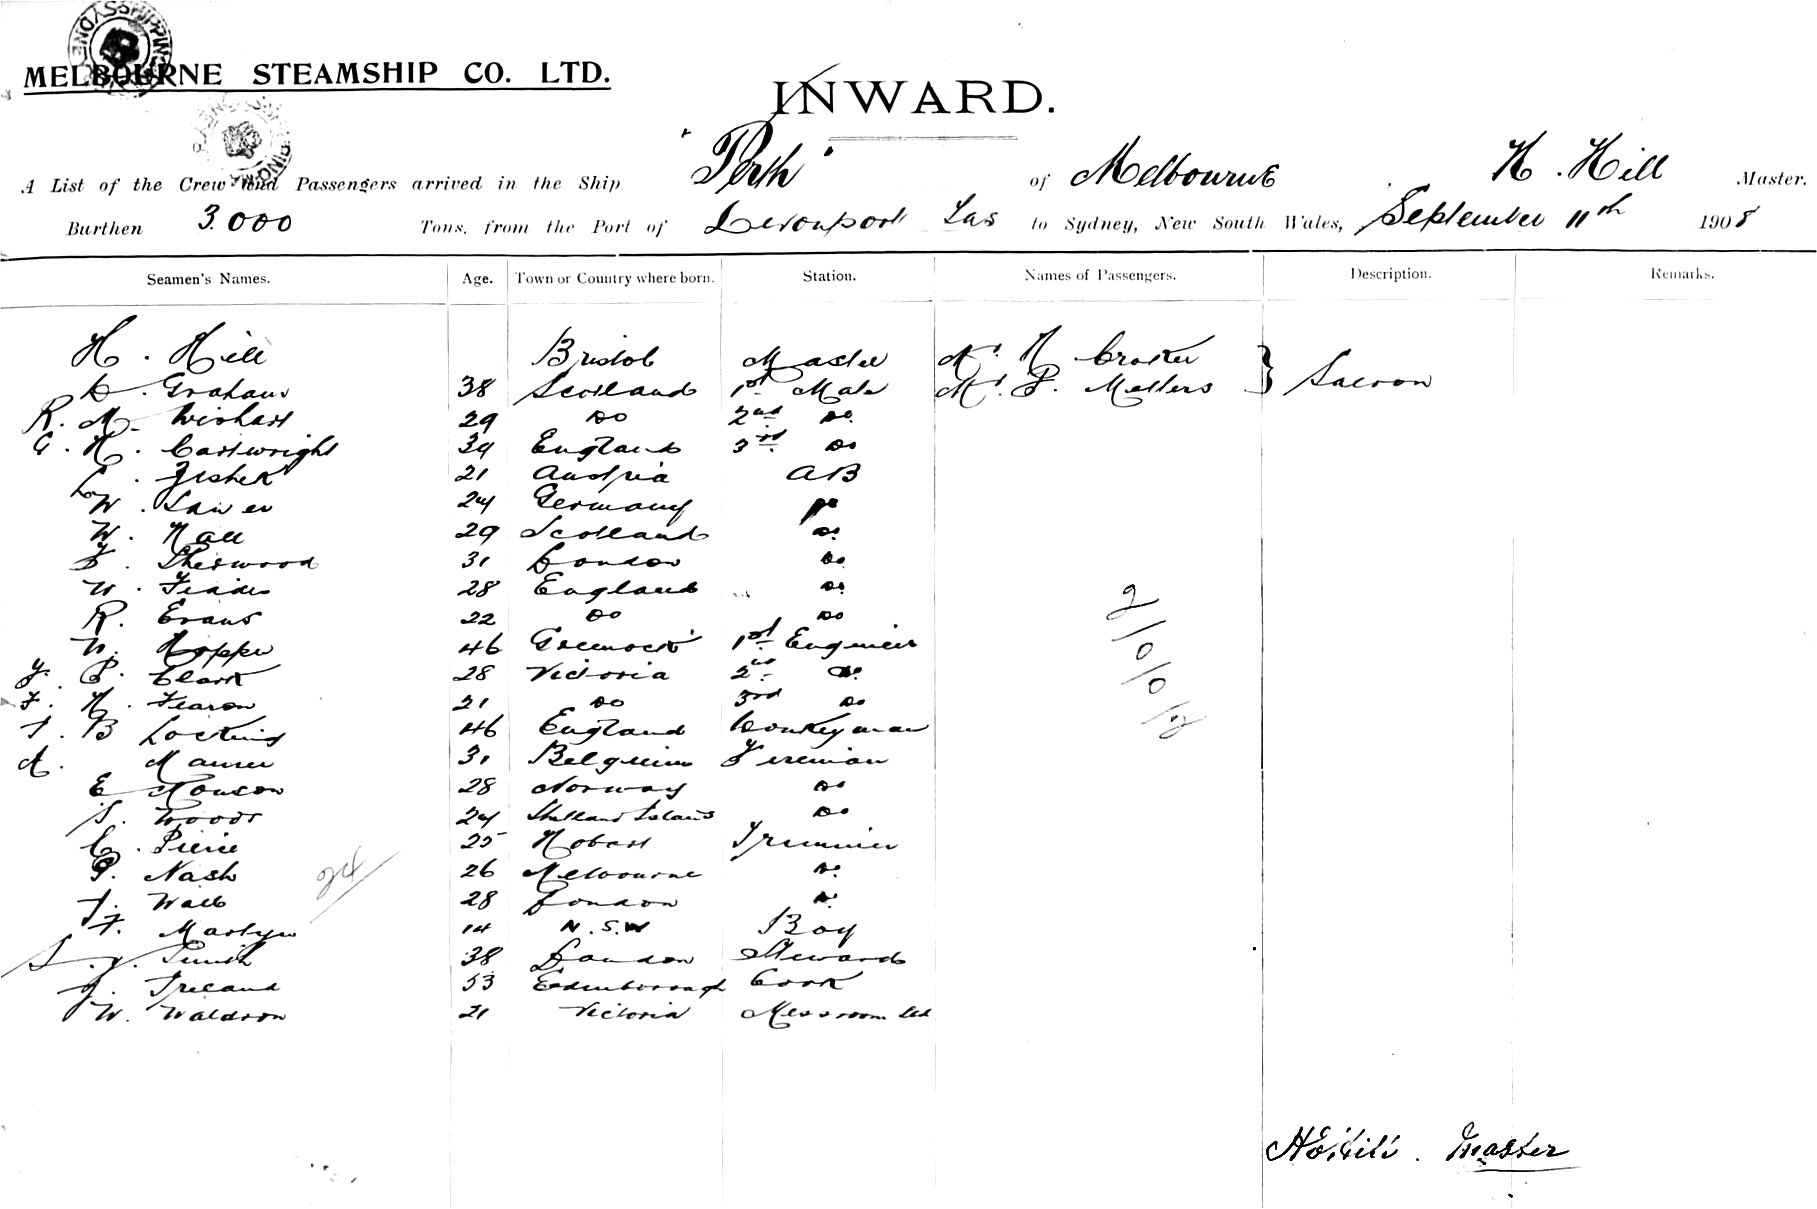 MELBOURNE STEAMSHIP CO. LTD.
INWARD.
A List of the Crew and Passengers arrived in the Ship "Perth" of Melbourne H. Hill Master.
Burthen 3.000 Tons. from the Port of Devonport Tas to Sydney, New South Wales, September 11th 1908
Seamen's Names. Age. Town or Country where born. Station. Names of Passengers. Description. Remarks.
H. Hill Bristol Master Mr. H Croker
Graham 38 Scotland 1st Mate Mr. P. Masters } Saloon
R. M. Wishart 29 Do 2nd Do
G. H. Cartwright 39 England 3rd Do
Fisher 21 Austria AB
W. Sawer 24 Germany Do
W. Hall 29 Scotland Do
Sherwood 31 London Do
W. 28 England Do
R. Evans 22 Do Do
W. Hopper 46 Greenock 1st Engineer
J. P. Clark 28 Victoria 2nd Do
F. H. Fearon 21 Do 3rd Do
T. B Locking 46 England Donkeyman
A. 31 Belgium Fireman
E Hanson 28 Norway Do
S. Woods 24 Shetland Islands Do
C. Pierie 25 Hobart Trimmer
P. Nash 26 Melbourne Do
J. Wall 28 London Do
F. Martyn 14 N.S.W Boy
S. J. Smith 38 London Steward
J. Ireland 53 Edenborough Cook
W. Waldron 21 Victoria Messroom Std
24
2/0/0/2
H Hill. Master